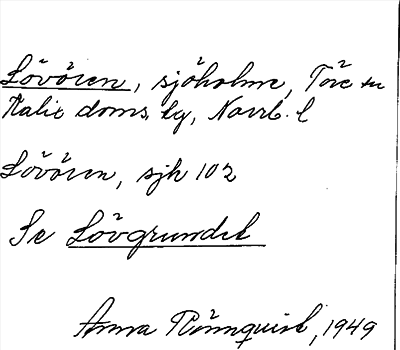 Lövören, sjöholme, Töre sn
Kalix doms. lg, Norrb. l
Lövören, sjh 102
Se Lövgrundet
Anna Rönnquist, 1949